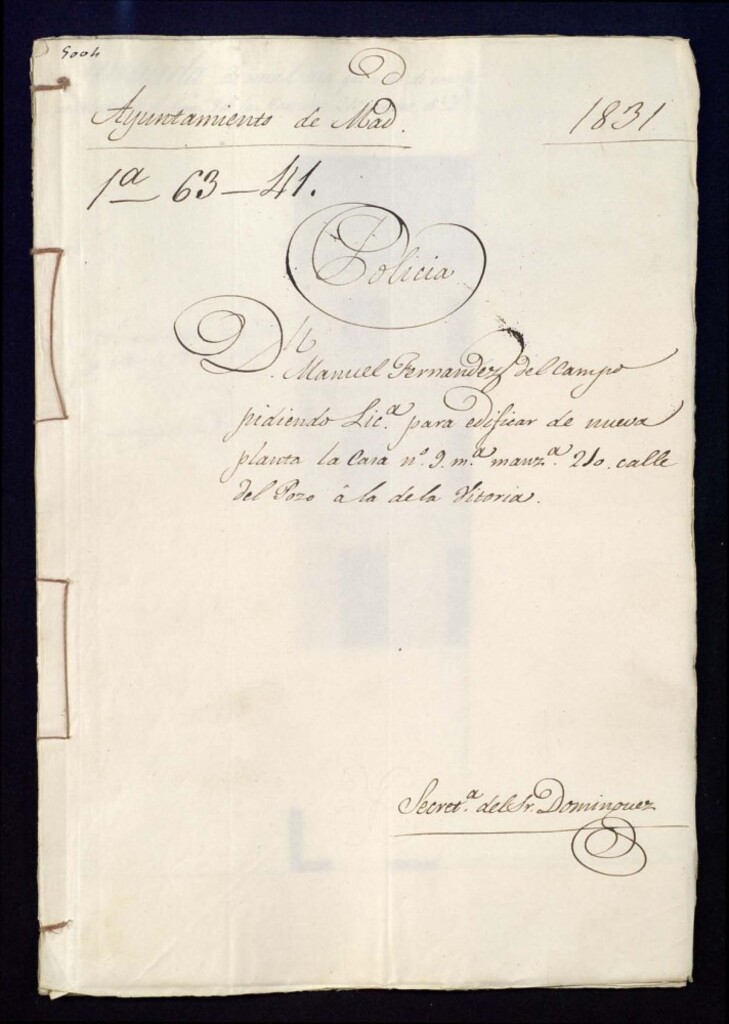 Ayuntamiento de Mad. 1831
1ª 63-41.
Policia
Dⁿ Manuel Fernandez del Campo
pidiendo Lic.ª para edificar de nueva
planta la Casa nº 9. m.ª manzª. 210. calle
del Pozo â la de la Vitoria.
Secret.ª del Sr. Dominguez